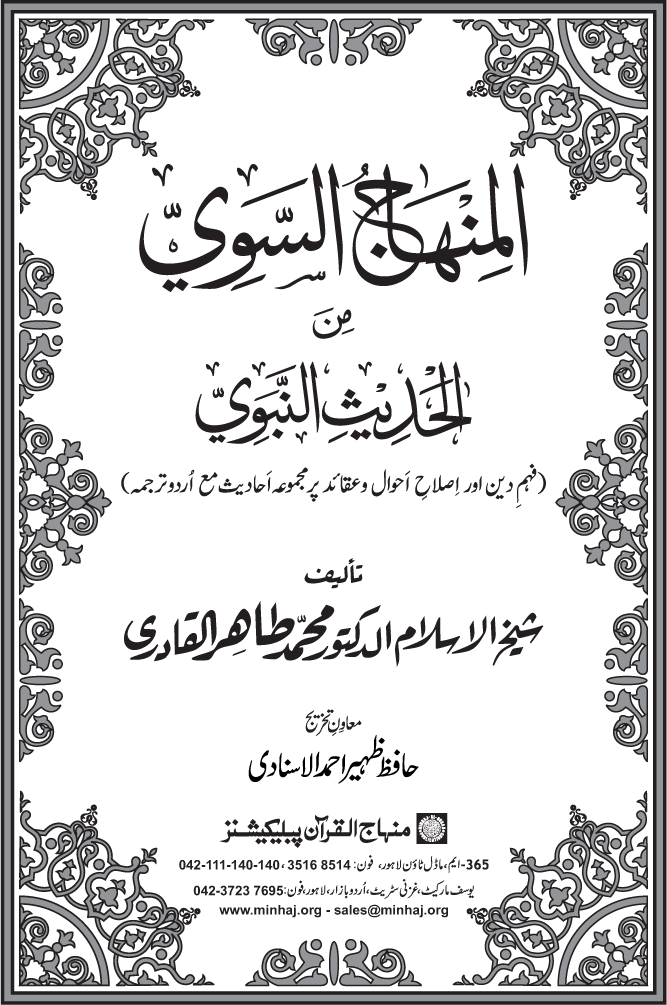 المِنْهَاجُ السَّوِيّ
مِنَ
الْحَدِيْثِ النَّبَوِيّ
(فہمِ دین اور اِصلاحِ اَحوال و عقائد پر مجموعہ اَحادیث مع اُردو ترجمہ)
تألیف
شیخ الاسلام الدکتور محمّد طاھر القادری
معاونِ تخریج
حافظ ظہیر احمد الاسنادی
منہاج القرآن پبلیکیشنز
365-ایم، ماڈل ٹاؤن لاہور، فون: 8514 3516، 140-140-111-042
یوسف مارکیٹ، غزنی سٹریٹ، اُردو بازار، لاہور، فون: 7695 3723-042
www.minhaj.org - sales@minhaj.org